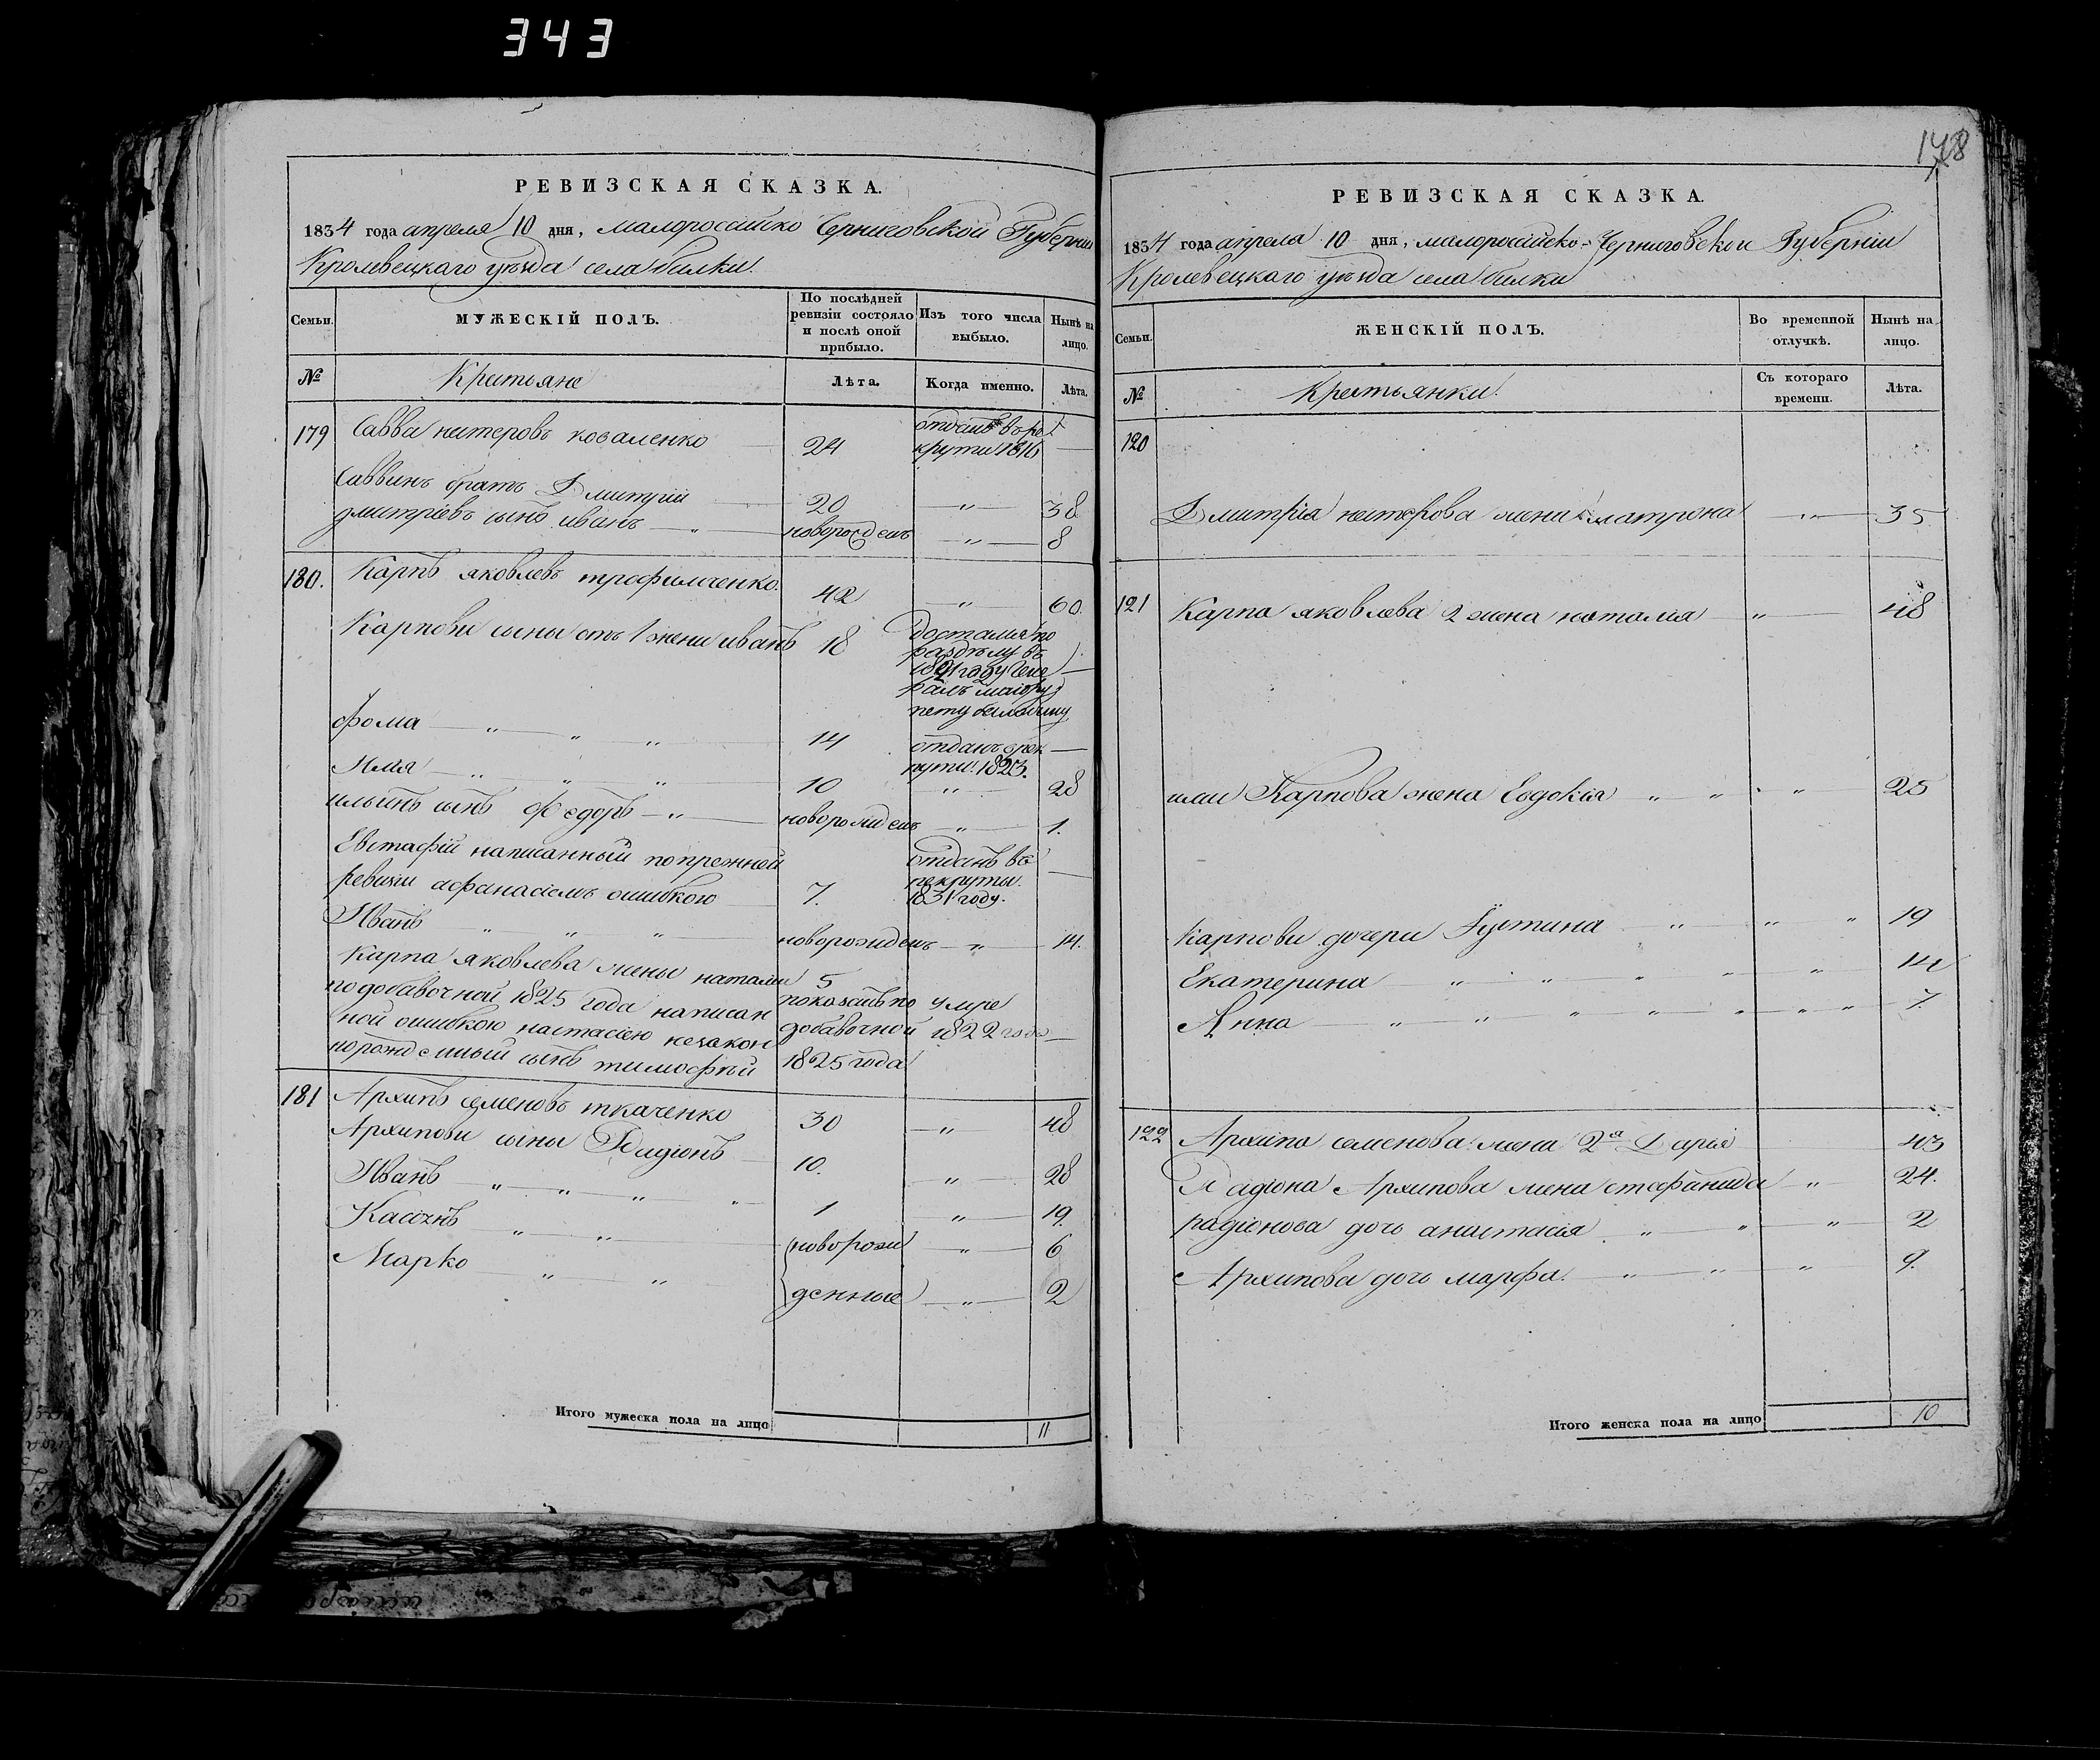 343
РЕВИЗСКАЯ СКАЗКА.
1834 года апреля 10 дня, малоросійско Черниговской Губерніи
Кролевецкаго уѣзда села билки.
Семьи.
МУЖЕСКІЙ ПОЛЪ.
По послѣдней ревизіи состояло и послѣ оной прибыло.
Изъ того числа выбыло.
Нынѣ на лицо.
№
Крестьяне
Лѣта.
Когда именно.
Лѣта.
179 Савва нестеровъ коваленко 24 отданъ въ ре
крути 1816
Саввинъ братъ Дмитрій 20 " 38
дмитріевъ сынъ иванъ " новорожденъ " 8
180. Карпъ яковлевъ трофимченко. 42 " 60.
Карпови сыны отъ 1 жени иванъ 18 достался по
раздѣлу въ
1821 году Гене
ралъ маіору
фома " " " 14 отданъ врек
рути 1823.
Илья " " " 10 " 28
ильинъ сынъ Федоръ " новорожденъ " 1.
Евстафій написанный попрежней
ревизіи афанасіемъ ошибкою 7. отданъ въ
рекруты.
1831 году.
Иванъ " " " новорожденъ " 14.
Карпа яковлева жены наталіи 5
подобавочной 1825 года написан показанъ по умре
ной ошибкою настасіею незакон добавочной 1822 года
норожденный сынъ тимофѣй 1825 года
181 Архипъ семеновъ ткаченко 30 " 48
Архипови сыны Радіонъ 10. " 28
Иванъ " " " " 1 " 19.
Касіянъ " " новорож " 6
Марко " " денные " 2
Итого мужеска пола на лицо 11
148
РЕВИЗСКАЯ СКАЗКА.
1834 года апреля 10 дня, малоросійско-Черниговской Губерніи
Кролевецкаго уѣзда села билки
Семьи.
ЖЕНСКІЙ ПОЛЪ.
Во временной отлучкѣ.
Нынѣ на лицо.
№
Крестьянки.
Съ котораго времени.
Лѣта.
120
Дмитрія нестерова жена матрона " 35
121 Карпа яковлева 2 жена наталія " 48
или Карпова жена Евдокія " " " 25
Карпови дочери Іустина " " " 19
Екатерина " " " " " 14
Анна " " " " " " " 7.
122 Архипа семенова жена 2я Дарія 43
Радіона Архипова жена стефанида " 24.
радіонова дочь анастасія " " " 2
Архипова дочь марфа. " " " 9.
Итого женска пола на лицо 10